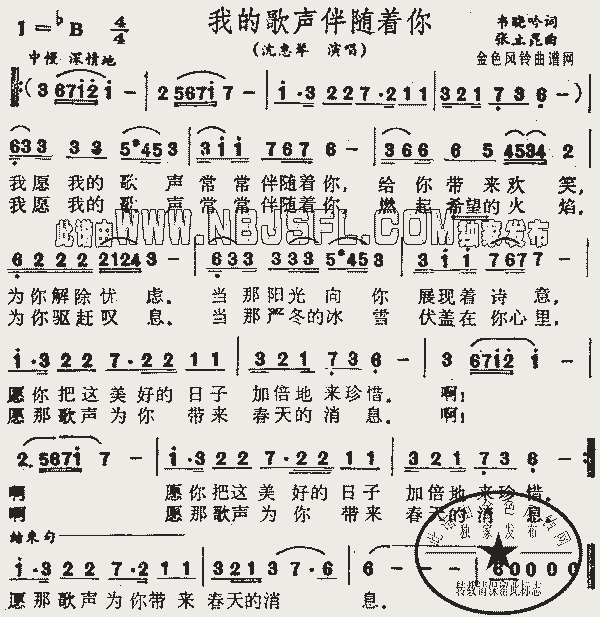 我的歌声伴随着你
1=♭B 4/4
韦晓吟词
(沈惠琴 演唱)
张立昆曲
中慢 深情地
金色风铃曲谱网
(3 6712 1 - | 2 5671 7 - | 1·3 227·211 | 321 73 6 -)
633 33 5#453 | 311 767 6 - | 366 6 5 4534 2
我愿我的歌声常常伴随着你,给你带来欢笑,
我愿我的歌声常常伴随着你,燃起希望的火焰。
此谱由WWW.NBJSFL.COM独家发布
6 2 2 2 2124 3 - | 633 333 5#453 | 311 767 7 -
为你解除忧虑。当那阳光向你展现着诗意,
为你驱赶叹息。当那严冬的冰雪伏盖在你心里,
1·3 22 7·22 11 | 321 73 6 - | 3 6712 1 -
愿你把这美好的日子加倍地来珍惜。啊!
愿那歌声为你带来春天的消息。啊!
2 5671 7 - | 1·3 227·22 11 | 321 73 6 -
啊 愿你把这美好的日子加倍地来珍惜。
啊 愿那歌声为你带来春天的消息
结束句
1·3 22 7·2 11 | 3213 7·6 7 | 6 - - - | 6 0000
愿那歌声为你带来春天的消息。
此谱由金色风铃网
独家发布
转载请保留此标志